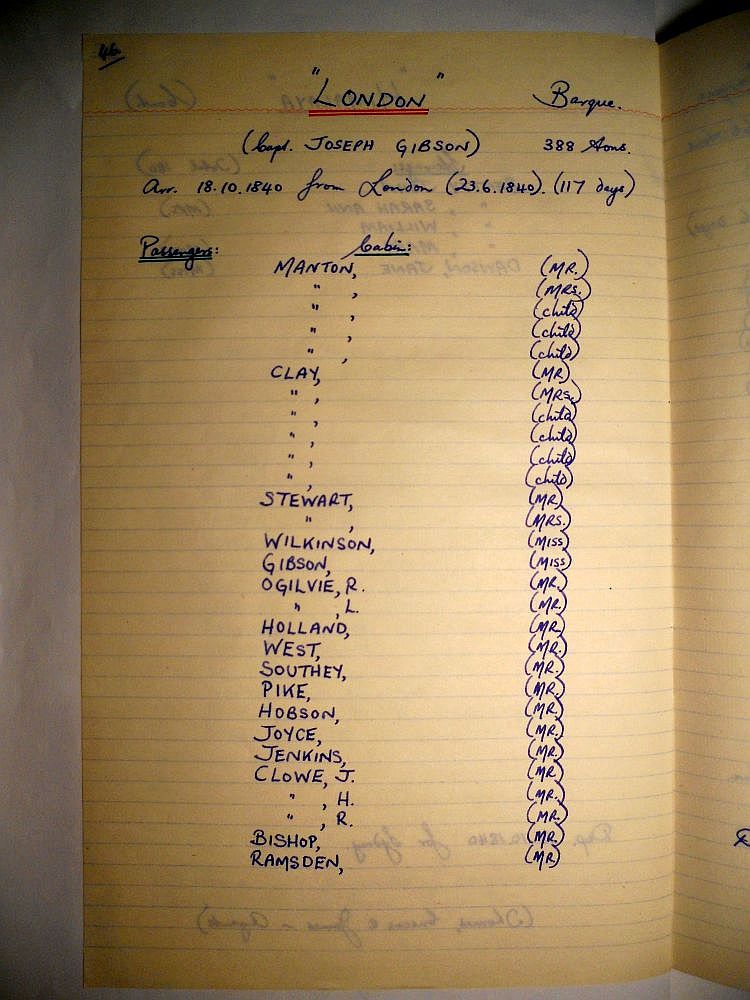 46
"LONDON" Barque.
(Capt. JOSEPH GIBSON) 388 tons.
Arr. 18.10.1840 from London (23.6.1840). (117 days)
Passengers: Cabin:
MANTON, (MR.)
" , (MRS.)
" , (child)
" , (child)
" , (child)
CLAY, (MR)
" , (MRS.)
" , (child)
" , (child)
" , (child)
" , (child)
STEWART, (MR)
" , (MRS.)
WILKINSON, (MISS)
GIBSON, (MISS)
OGILVIE, R. (MR.)
" , L. (MR.)
HOLLAND, (MR.)
WEST, (MR.)
SOUTHEY, (MR.)
PIKE, (MR.)
HOBSON, (MR.)
JOYCE, (MR.)
JENKINS, (MR.)
CLOWE, J. (MR)
" , H. (MR.)
" , R. (MR.)
BISHOP, (MR.)
RAMSDEN, (MR)